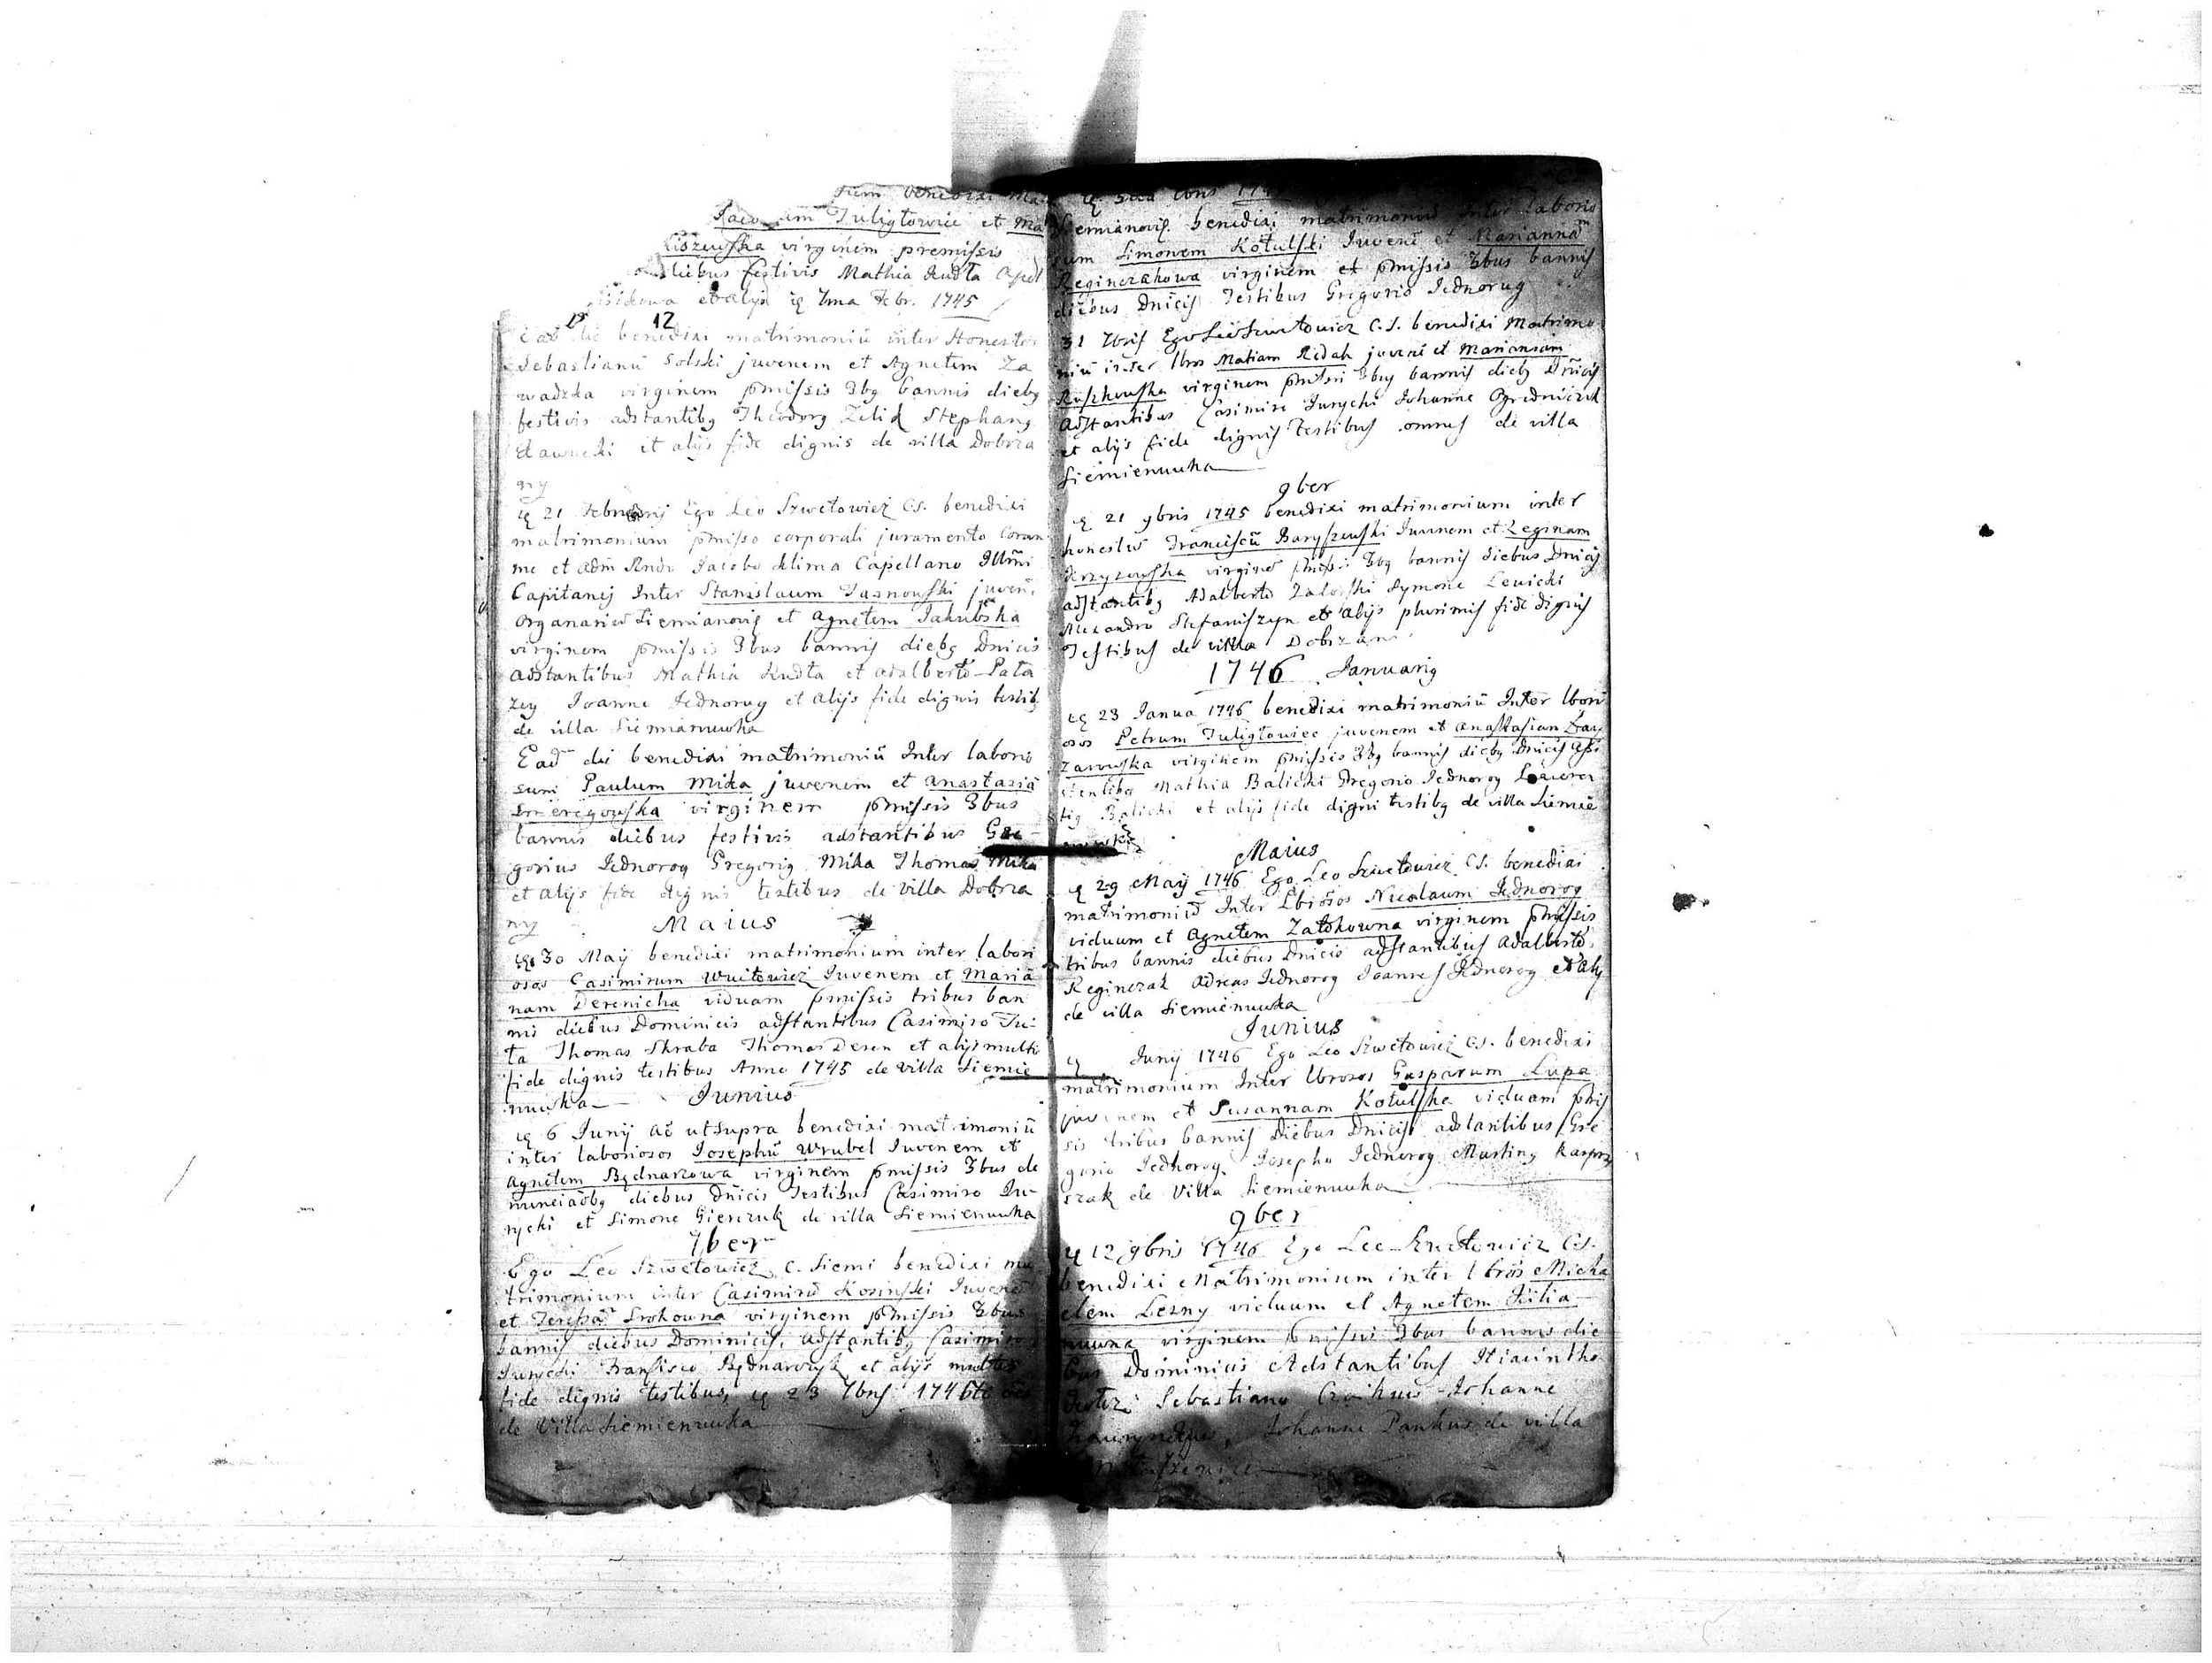 benedixi
Jaco um Tuligłowicz et Ma
liszewska virginem premissis
diebus festivis Mathia Kudła
et alys 7ma Febr. 1745
12
Ead die benedixi matrimoniū inter Honestos
Sebastianū Solski juvenem et Agnetem Za
wadzka virginem pmissis 3bq bannis diebq
festivis adstantibq Theodorq Zelik Stephanq
et alijs fide dignis de villa Dobrza
ny
21 Februarij Ego Leo Szwetowicz C.S. benedixi
matrimonium pmisso corporali juramento Coram
me et Adm Rndo Jacobo Klima Capellano Illmi
Capitanij Inter Stanislaum Jasnowski juvenē
Organariū Siemianovis et Agnetem Jakubska
virginem pmissis 3bus bannis diebq Dnicis
adstantibus Mathia Kudła et Adalberto Pata
zey Joanne Jednorog et alijs fide dignis testibq
de villa Siemianuwka
Ead die benedixi matrimoniū Inter laborio
sum Paulum Mika juvenem et Anastasiā
Smeregowska virginem pmissis 3bus
bannis diebus festivis adstantibus Gre
gorius Jednorog Gregoriq Mika Thomas Mika
et alijs fide dignis testibus de villa Dobrza
ny Maius
30 Maij benedixi matrimonium inter labori
osos Casimirum Wuitowicz Juvenem et Mariā
nam Derenicha viduam pmissis tribus ban
nis diebus Dominicis adstantibus Casimiro Ju-
ta Thomas Skraba Thomas Deren et alijs multis
fide dignis testibus Anno 1745 de villa Siemie
nuwka Junius
6 Junij ac ut supra benedixi matrimoniū
inter laboriosos Josephū Wrubel Juvenem et
Agnetem Będnarzowa virginem pmissis 3bus de
nunciaōbq diebus Dnicis Testibus Casimiro Ju-
rycki et Simone Gierczuk de villa Siemienuwka
7ber
Ego Leo Szwetowicz C. Siemi benedixi ma
trimonium inter Casimirū Kosinski Juvenē
et Teresā Srokowna virginem pmissis 3bus
bannis diebus Dominicis, adstantibq Casimiro
Jurycki Francisco Będnarczyk et alijs multis
fide dignis testibus, 23 7bris 1745
de Villa Siemienuwka
Siemianovis. benedixi matrimoniū Inter Laborio
sum Simonem Kotulski Juvenē et Mariannam
Reginczakowa virginem et pmissis 3bus bannis
diebus Dnicis Testibus Gregorio Jednorug
31 7bris Ego Leo Szwetowicz C.S. benedixi Matrimo
niū inter lbros Matiam Ridak juvenē et Mariannam
Ruszkowska virginem 3bus bannis diebq Dnicis
adstantibus Casimiro Jurycki Johanne Ogredniczek
et alijs fide dignis Testibus omnes de villa
Siemienuwka
9ber
21 9bris 1745 benedixi matrimonium inter
honestos Franciscū Baryszewski Juvenem et Reginam
Krzyzowska virginem pmissis 3bq bannis diebus Dnicis
adstantibq Adalberto Zaleski Symone Lewicki
Alexandro Stefaniszyn et alijs plurimis fide dignis
Testibus de villa Dobrzani
1746 Januariq
23 Janua 1746 benedixi matrimoniū Inter lbori
osos Petrum Tuligłowicz juvenem et Anastasiam Łay
zarowska virginem pmissis 3bq bannis diebq Dnicis assi
stentibq Mathia Balicki Gregorio Jednorog Lauren
tiq Balicki et alijs fide digni testibq de villa Siemie
nuwka
Maius
29 Maij 1746 Ego Leo Szwetowicz C.S. benedixi
matrimoniū Inter Lbiosos Nicolaum Jednorog
viduum et Agnetem Zatokowna virginem pmissis
tribus bannis diebus Dnicis adstantibus Adalberto
Reginczak Adreas Jednorog Joannes Jednorog et aly
de villa Siemienuwka
Junius
Junij 1746 Ego Leo Szwetowicz C.S. benedixi
matrimonium Inter lbrosos Gasparum Lupa
juvenem et Susannam Kotulska viduam pmis
sis tribus bannis Diebus Dnicis adstantibus Gre
gorio Jednorog, Josepho Jednorog Martinq Kasprzy
szak de Villa Siemienuwka
9ber
12 9bris 1746 Ego Leo Szwetowicz C.S.
benedixi Matrimonium inter lbros Micha
elem Lezny viduum et Agnetem Kilia
nuwna virginem pmissis 3bus bannis die
bus Dominicis Adstantibus Hiacintho
Sebastiano Johanne
Johanne Pankus de villa